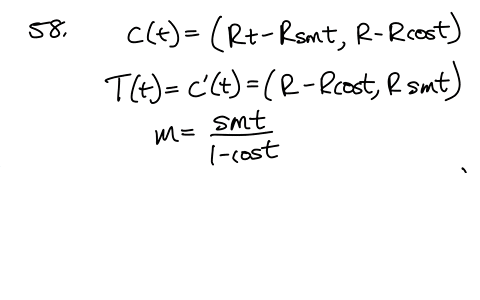 58. c(t) = (Rt - Rsint, R - Rcost)
T(t) = c'(t) = (R - Rcost, Rsint)
m = sint / 1 - cost